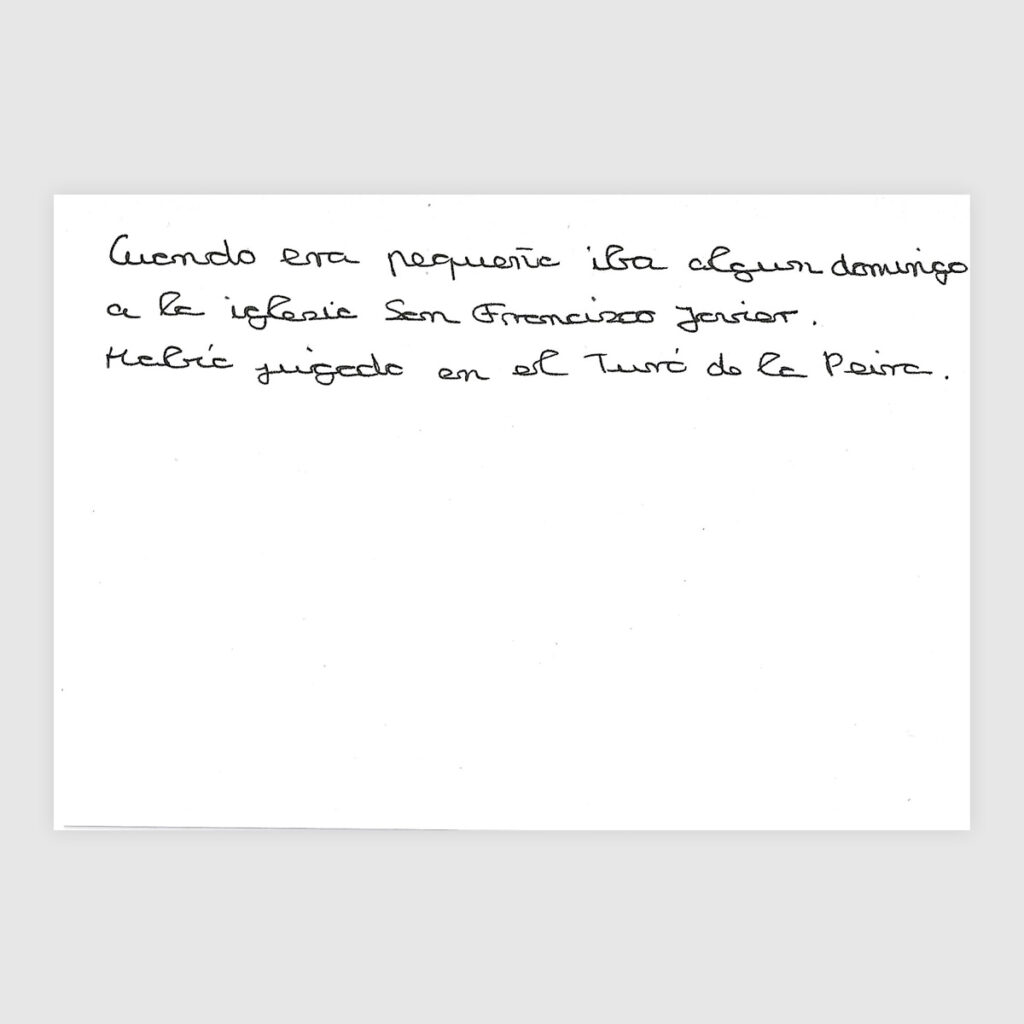 Cuando era pequeña iba algun domingo
a la iglesia San Francisco Javier.
Había jugado en el Turó de la Peira.